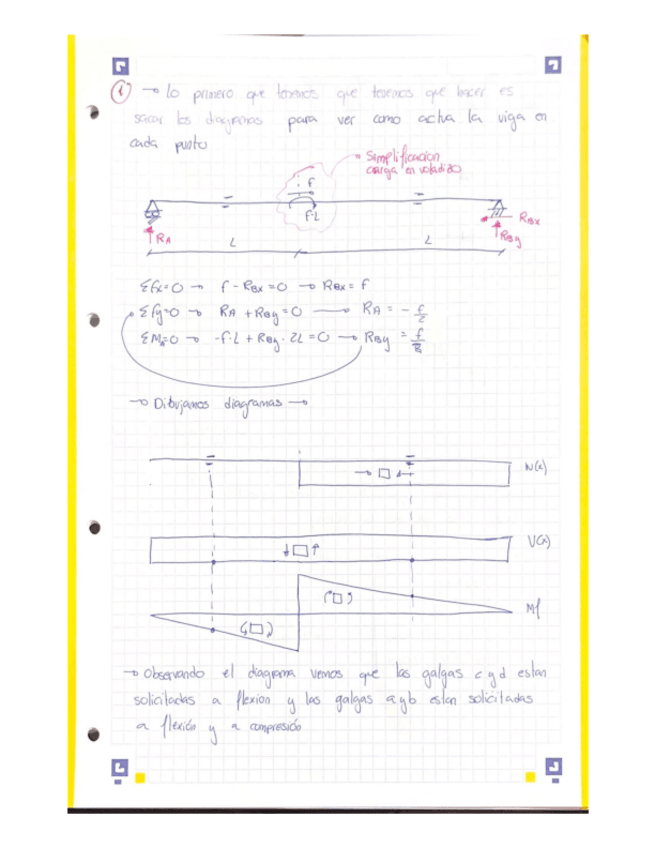 1 → Lo primero que tenemos que tenemos que hacer es
sacar los diagramas para ver como actua la viga en
cada punto
Simplificacion
carga en voladizo
f
f·L
RA
L
L
RBx
RBy
ΣFx=0 → f - RBx = 0 → RBx = f
ΣFy=0 → RA + RBy = 0 → RA = - f/2
ΣMA=0 → -f·L + RBy · 2L = 0 → RBy = f/2
→ Dibujamos diagramas →
N(x)
V(x)
Mf
→ Observando el diagrama vemos que las galgas c y d estan
solicitadas a flexión y las galgas a y b estan solicitadas
a flexión y a compresión